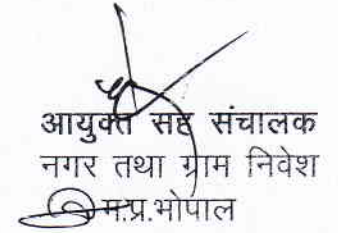 आयुक्त सह संचालक
नगर तथा ग्राम निवेश
म.प्र.भोपाल